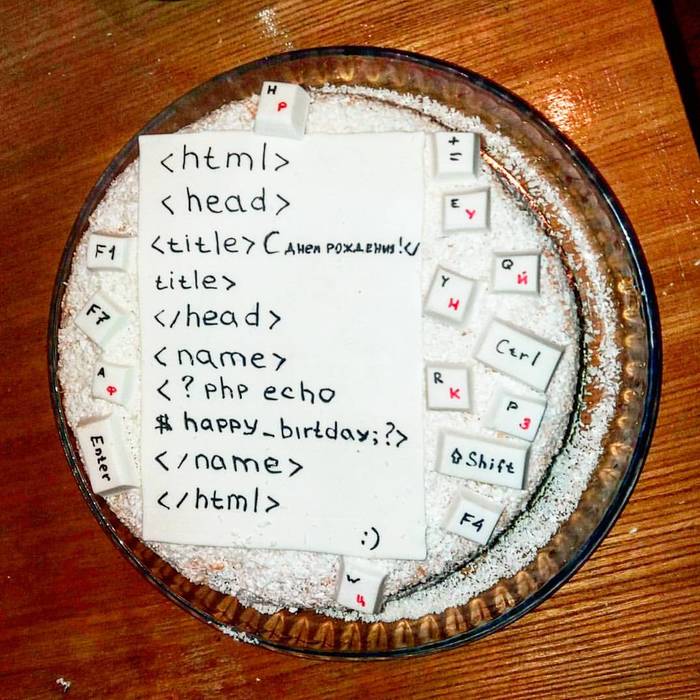 H Р
<html>
<head>
<title> С днем рождения!</
title>
</head>
<name>
<? php echo
$ happy_birtday;?>
</name>
</html>
:)
F1
F7
A Ф
Enter
+ =
E У
Q Й
Y Н
Ctrl
R К
P З
⇧Shift
F4
W Ц